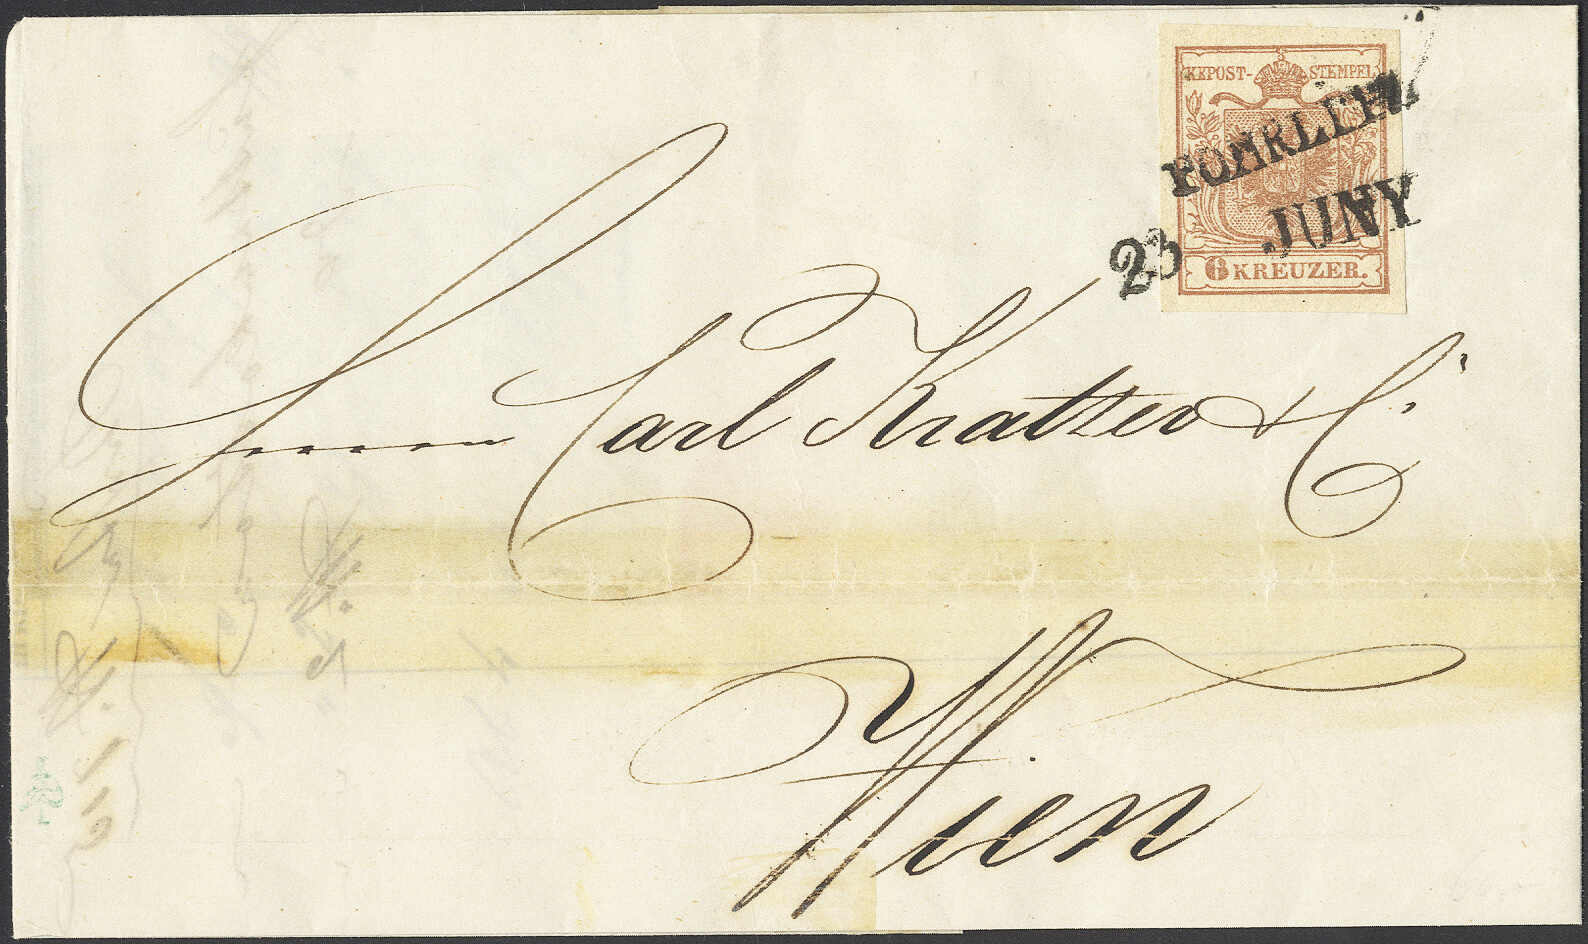 KKPOST-STEMPEL
POHRLITZ
23 JUNY
6 KREUZER.
Herrn Carl Kratzer & C.
Wien